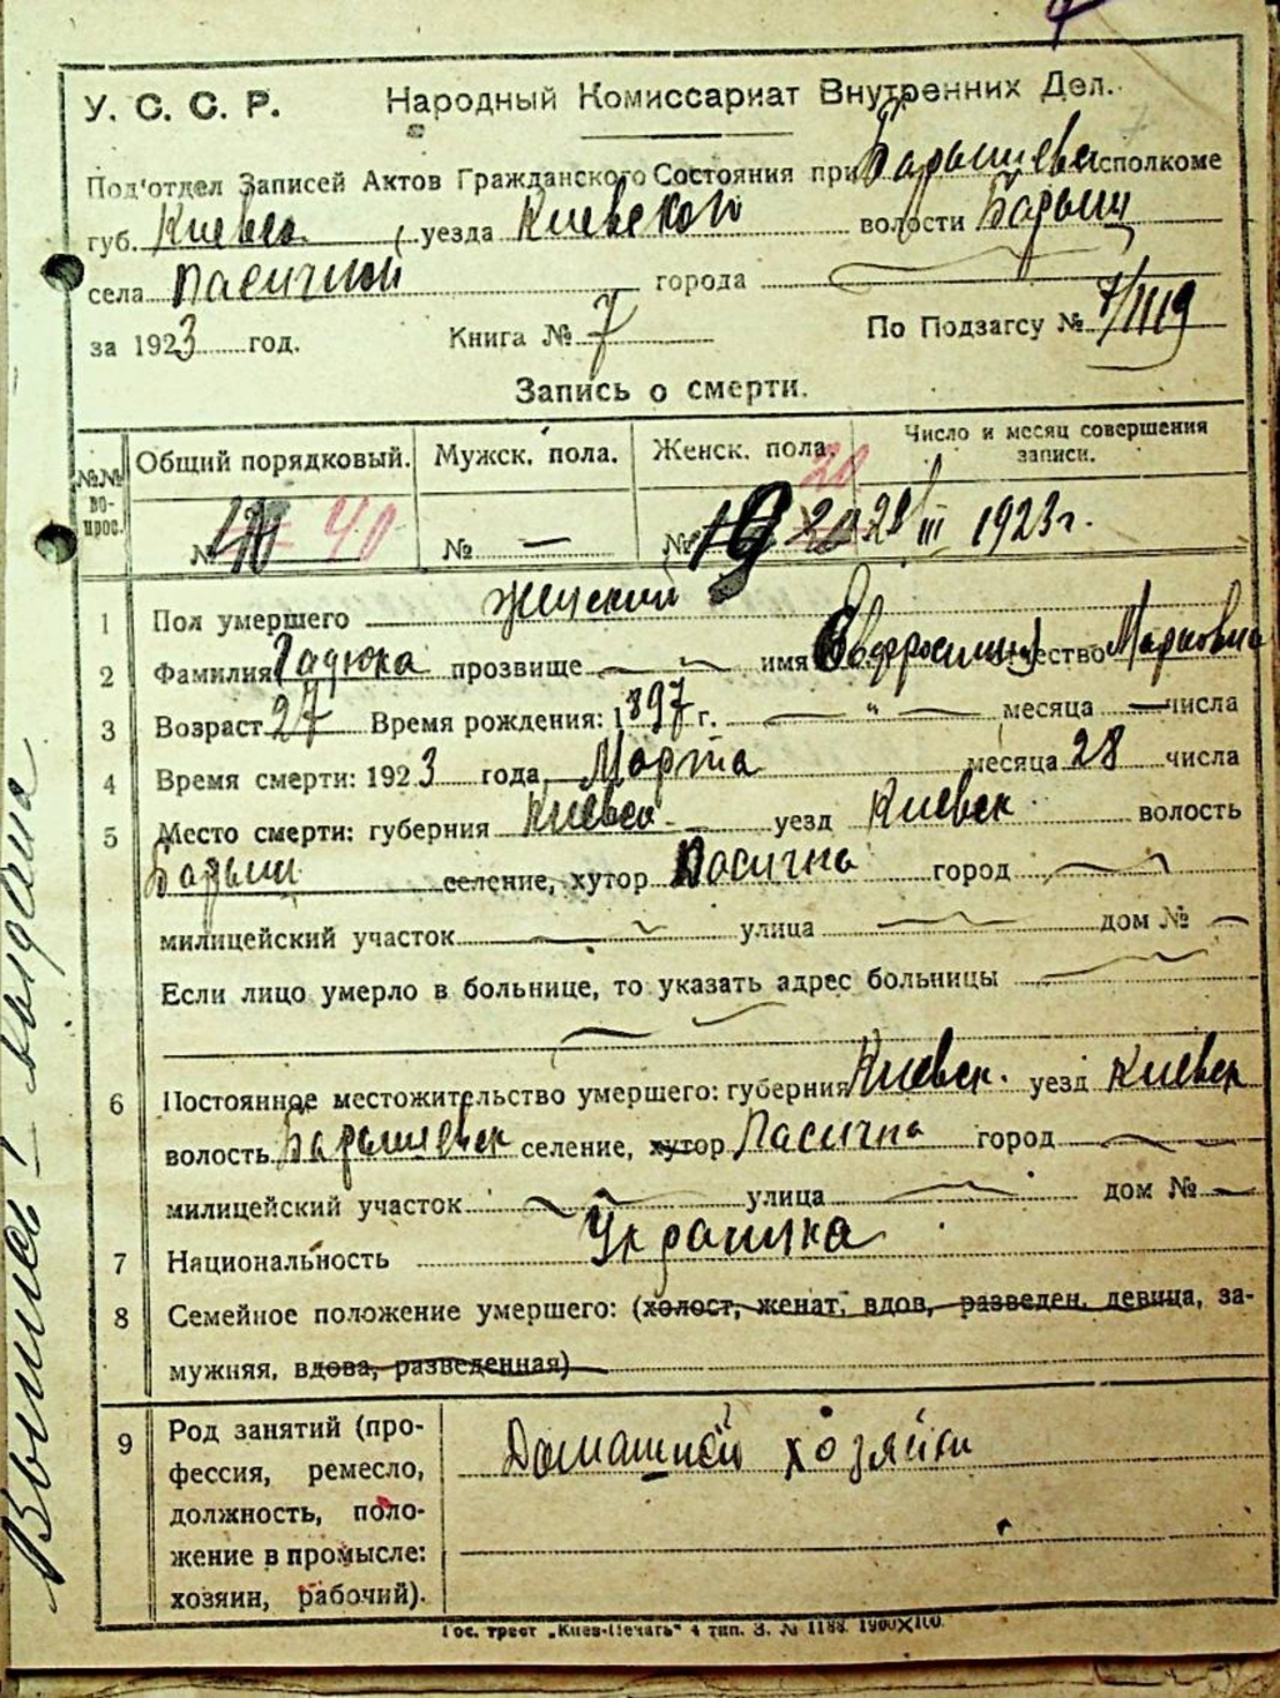 У. С. С. Р. Народный Комиссариат Внутренних Дел.
Под'отдел Записей Актов Гражданского Состояния при Барышевс исполкоме
губ. Киевск. уезда Киевской волости Барыш
села Пасични города
за 1923 год. Книга № 7 По Подзагсу №
Запись о смерти.
№№ вопрос. Общий порядковый. Мужск. пола. Женск. пола. Число и месяц совершения записи.
20
№ 40 40 № — № 19 20 28/III 1923 г.
1 Пол умершего женский
2 Фамилия Гадюка прозвище — имя Евфросиния отчество Марковна
3 Возраст 27 Время рождения: 1897 г. — " — месяца — числа
4 Время смерти: 1923 года, Марта месяца 28 числа
5 Место смерти: губерния Киевск. уезд Киевск волость
Барыш селение, хутор Пасична город —
милицейский участок — улица — дом № —
Если лицо умерло в больнице, то указать адрес больницы —
6 Постоянное местожительство умершего: губерния Киевск. уезд Киевск
волость Барышевск селение, хутор Пасична город —
милицейский участок — улица — дом № —
7 Национальность Украинка
8 Семейное положение умершего: (холост, женат, вдов, разведен, девица, за-
мужняя, вдова, разведенная)
9 Род занятий (про-
фессия, ремесло,
должность, поло-
жение в промысле:
хозяин, рабочий).
Домашней хозяйки
Гос. трест „Киев-Печать" 4 тип. З. № 1188. 1900Х100.
выдана